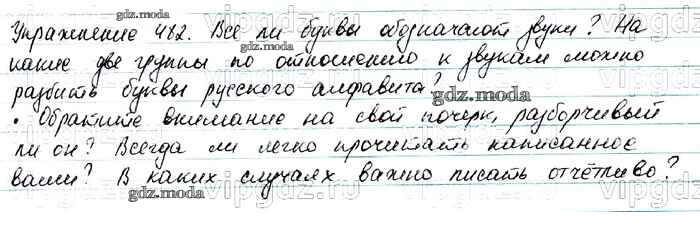 Упражнение 482. Все ли буквы обозначают звуки? На
какие две группы по отношению к звукам можно
разбить буквы русского алфавита?
• Обратите внимание на свой почерк, разборчивый
ли он? Всегда ли легко прочитать написанное
вами? В каких случаях важно писать отчётливо?
gdz.moda
gdz.moda
gdz.moda
gdz.moda
gdz.moda
gdz.moda
vipgdz
vipgdz.
vipgdz.ru
vipgdz